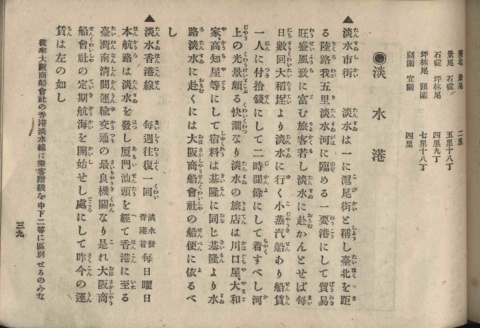 景尾 石碇 五里十八丁
石碇 坪林尾 四里九丁
坪林尾 頭圍 七里十八丁
頭圍 宜蘭 四里
淡水港
▲淡水市街 淡水は一に滬尾街と稱し臺北を距
る陸路我五里淡水河に臨める一要港にして貿易
旺盛風致に富む旅客若し淡水に赴かんとせば每
日數回大稻埕より淡水に行く小蒸汽船あり船賃
一人に付拾錢にして二時間餘にして着すべし河
上の光景頗る快濶なり淡水の旅店は川口屋、大和
家高知屋等にして宿料は基隆に同じ基隆より水
路淡水に赴くには大阪商船會社の船便に依るべ
し
▲淡水香港線 每週往復一回 淡水發 香港着 每日曜日
本航路は淡水を發し厦門汕頭を經て香港に至る
臺灣南清間運輸交通の最良機關なり是れ大阪商
船會社の定期航海を開始せし處にして昨今の運
賃は左の如し
從來大阪商船會社の香港淡水線に乘客階級を中下二等に區別せるのみな
三九